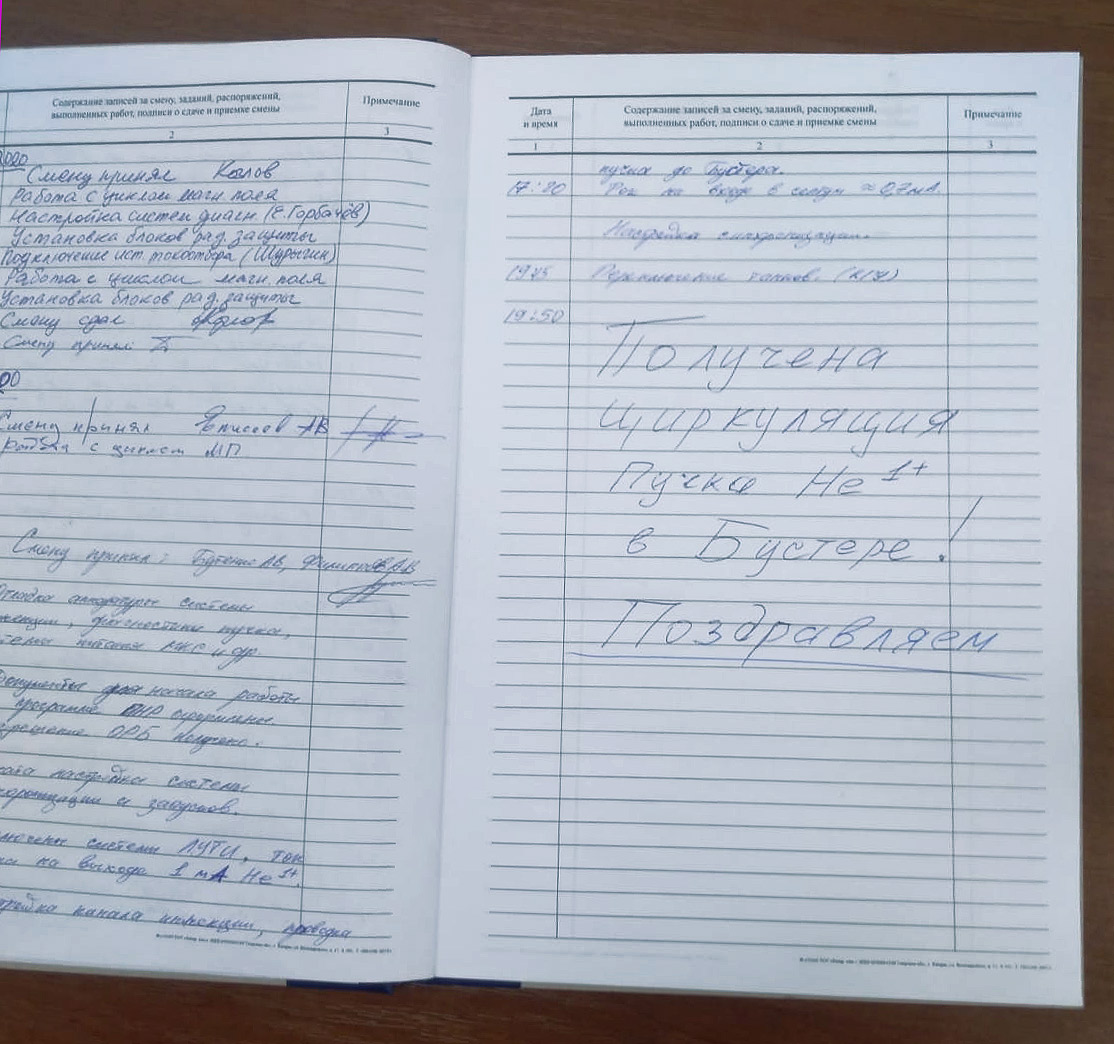 Содержание записей за смену, заданий, распоряжений,
выполненных работ, подписи о сдаче и приемке смены
Примечание
2
3
Смену принял Козлов
Работа с циклом магн. поля
Настройка систем диагн. (Е. Горбачёв)
Установка блоков рад. защиты
Подключение ист. токоотбора (Шурыгин)
Работа с циклом магн. поля
Установка блоков рад. защиты
Смену сдал
Смену принял
00
Смену принял Елисеев АВ
Работа с циклом МП
Смену принял: Бутенко АВ, Филиппов АВ
аппаратуры системы
, диагностики пучка,
питания и др
Документы для начала работы
программе ПНР оформлены
ОРБ получено.
настройка системы
и запусков.
системы ЛУТИ, ток
на выходе 1 мА He¹⁺.
канала инжекции, проводка
Дата
и время
Содержание записей за смену, заданий, распоряжений,
выполненных работ, подписи о сдаче и приемке смены
Примечание
1
2
3
пучка до Бустера.
17:20 Ток на входе в ≈ 0,7 мА.
Настройка синхронизации.
19:45 Переключение
19:50
Получена
циркуляция
Пучка He¹⁺
в Бустере!
Поздравляем